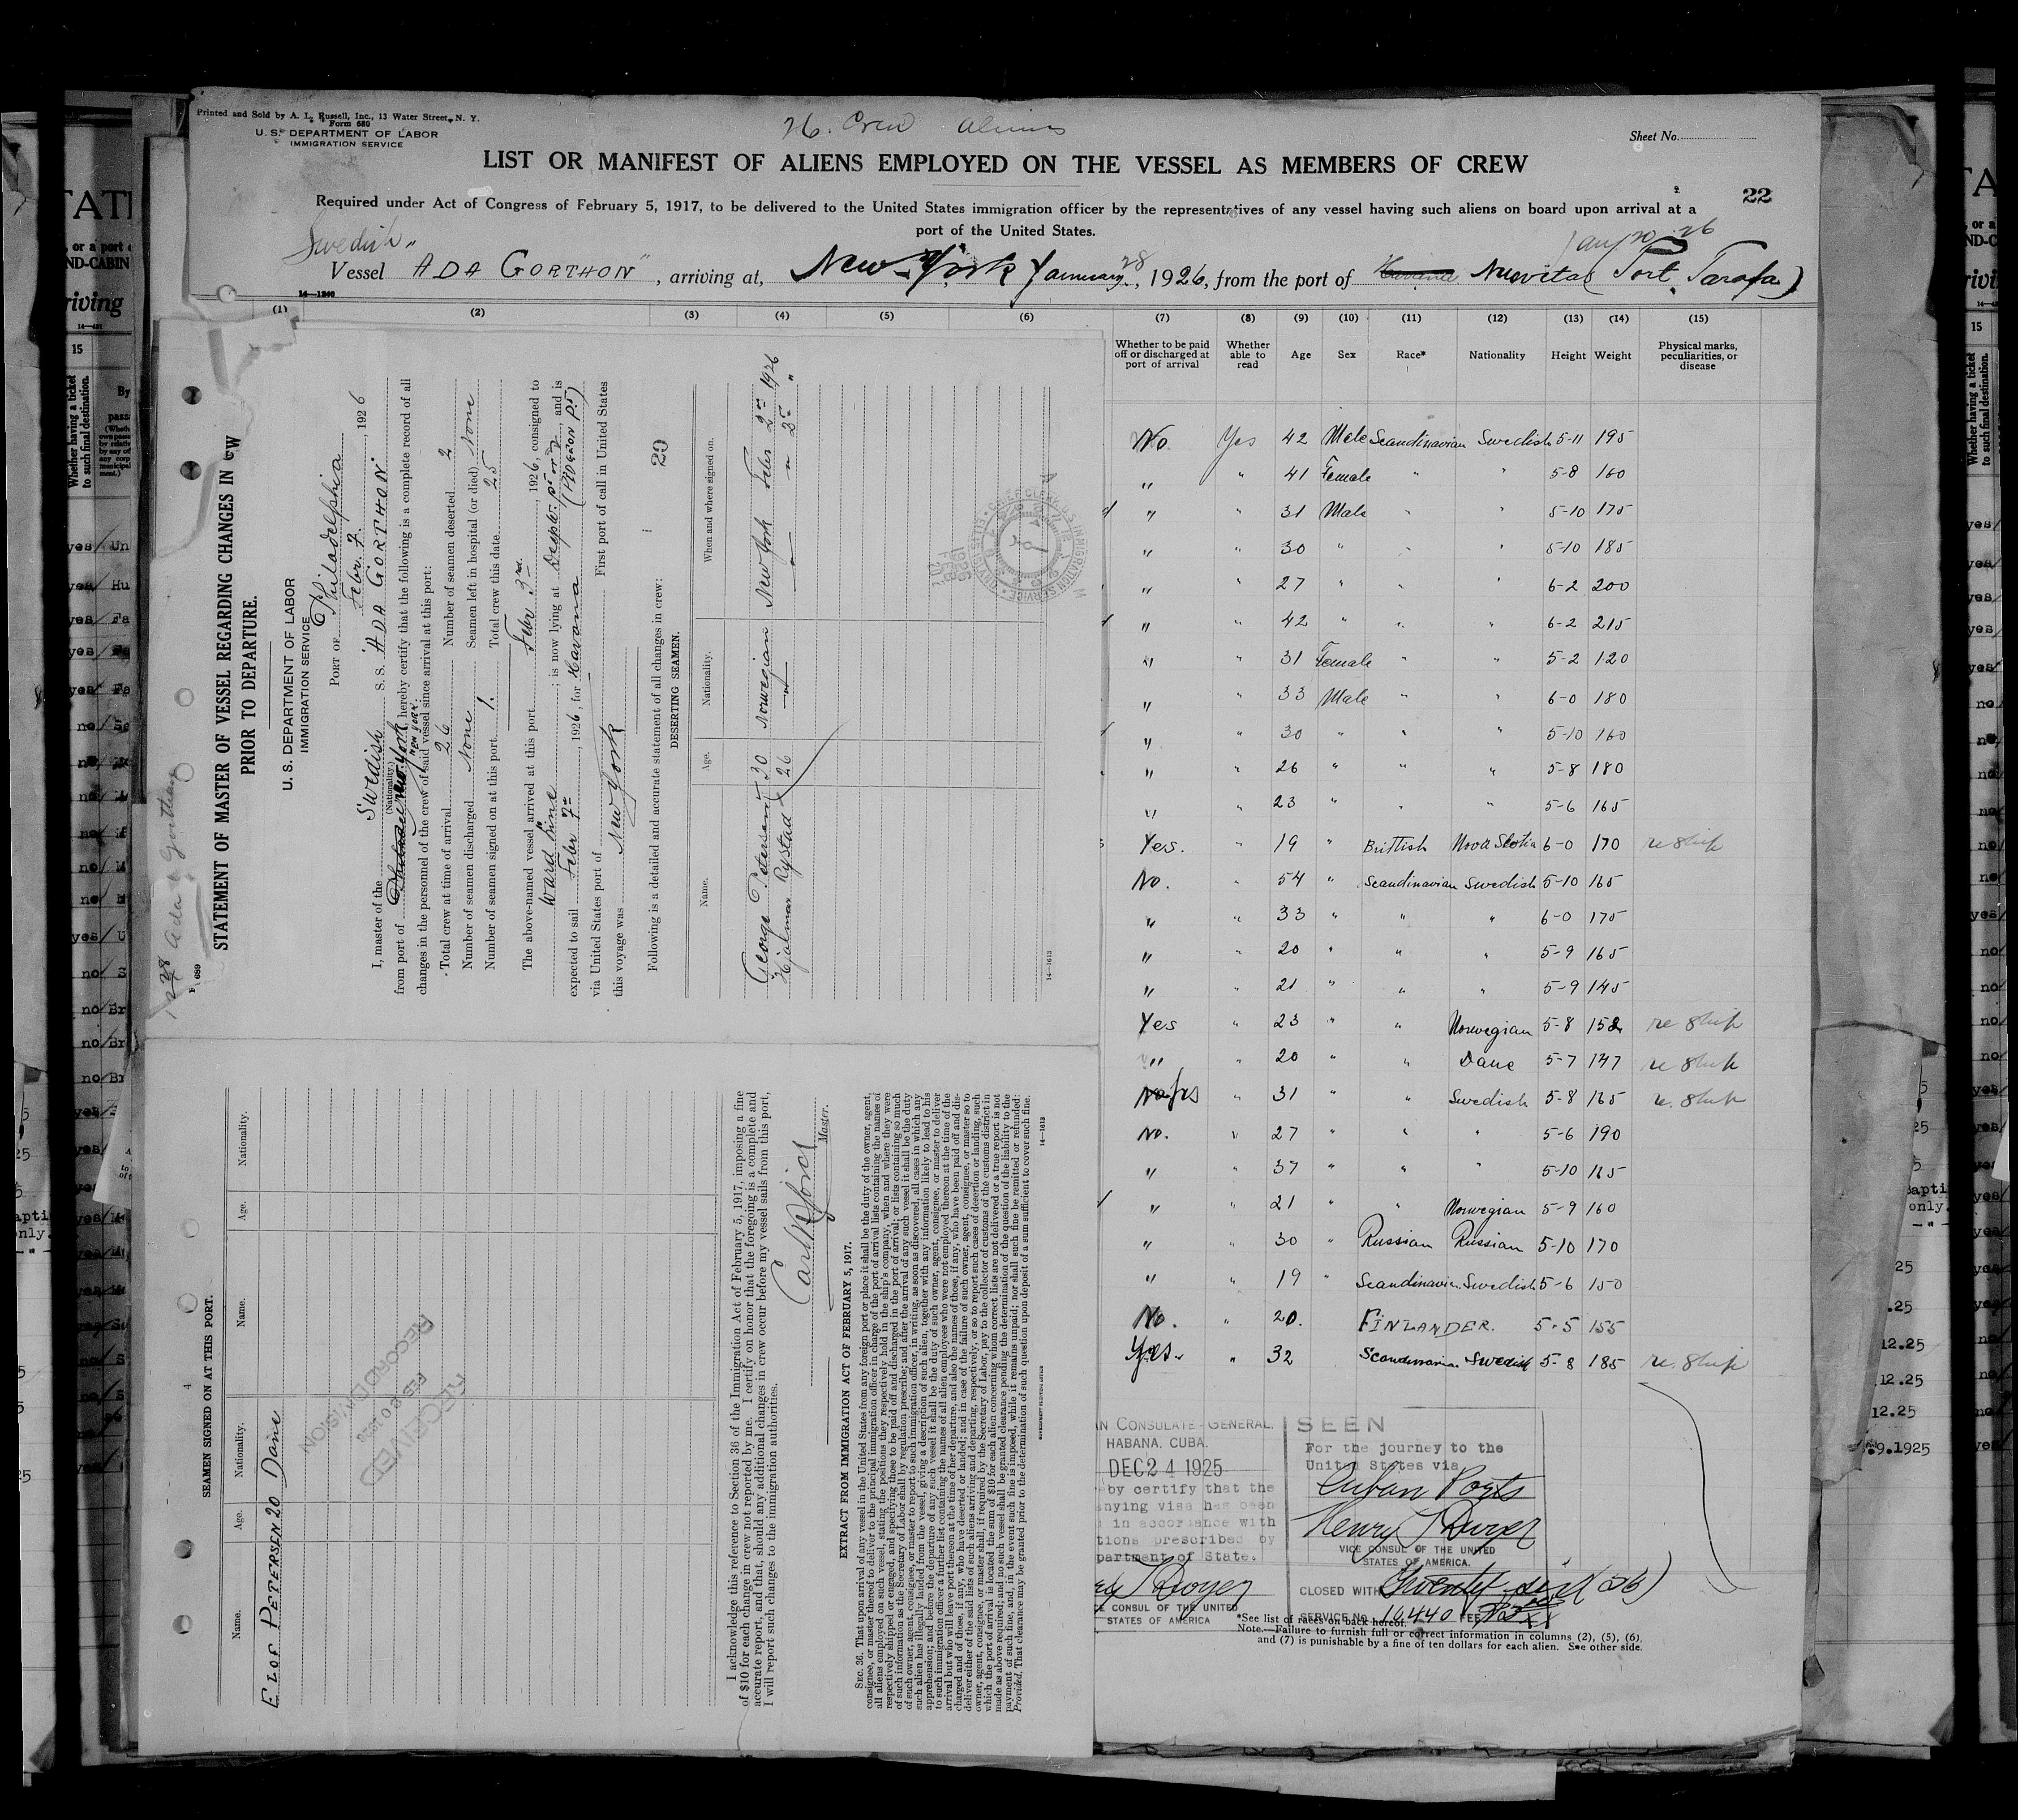 Printed and Sold by A. L. Russell, Inc., 13 Water Street, N. Y.
Form 680
U. S. DEPARTMENT OF LABOR
IMMIGRATION SERVICE
26. Crew aliens
Sheet No.
LIST OR MANIFEST OF ALIENS EMPLOYED ON THE VESSEL AS MEMBERS OF CREW
22
Required under Act of Congress of February 5, 1917, to be delivered to the United States immigration officer by the representatives of any vessel having such aliens on board upon arrival at a
port of the United States.
Swedish
Jan 20 26
Vessel "ADA GORTHON", arriving at, New-York January 28, 1926, from the port of Havana Nuevitas (Port Tarafa)
14—1240
(1) (2) (3) (4) (5) (6) (7) (8) (9) (10) (11) (12) (13) (14) (15)
Whether to be paid off or discharged at port of arrival Whether able to read Age Sex Race* Nationality Height Weight Physical marks, peculiarities, or disease
No Yes 42 Male Scandinavian Swedish 5-11 195
" " 41 Female " " 5-8 160
" " 31 Male " " 5-10 175
" " 30 " " " 5-10 185
" " 27 " " " 6-2 200
" " 42 " " " 6-2 215
" " 31 Female " " 5-2 120
" " 33 Male 6-0 180
" " 30 " " " 5-10 160
" " 26 " " " 5-8 180
" " 23 " " " 5-6 165
Yes. " 19 " Brittish Nova Scotia 6-0 170 re ship
No. " 54 " Scandinavian Swedish 5-10 165
" " 33 " " " 6-0 175
" " 20 " " " 5-9 165
" " 21 " " " 5-9 145
Yes " 23 " " Norwegian 5-8 152 re ship
" " 20 " " Dane 5-7 147 re ship
No yes " 31 " " Swedish 5-8 165 re. ship
No. " 27 " " " 5-6 190
" " 37 " " " 5-10 165
" " 21 " " Norwegian 5-9 160
" " 30 " Russian Russian 5-10 170
" " 19 " Scandinavian Swedish 5-6 150
No. " 20. FINLANDER. 5-5 155
Yes. " 32 Scandinavian Swedish 5-8 185 re. ship
AN CONSULATE-GENERAL.
HABANA, CUBA.
DEC 24 1925
by certify that the
nying visa has been
in accordance with
tions prescribed by
partment of State.
CE CONSUL OF THE UNITED
STATES OF AMERICA
SEEN
For the journey to the
United States via
Cuban Ports
Henry T Dwyer
VICE CONSUL OF THE UNITED
STATES OF AMERICA.
CLOSED WITH Twenty-six (26)
SERVICE No. 16440 FEE
*See list of races on back hereof.
Note.—Failure to furnish full or correct information in columns (2), (5), (6),
and (7) is punishable by a fine of ten dollars for each alien. See other side.
Ada Gorthon
689
STATEMENT OF MASTER OF VESSEL REGARDING CHANGES IN CREW
PRIOR TO DEPARTURE.
U. S. DEPARTMENT OF LABOR
IMMIGRATION SERVICE
PORT OF Philadelphia
Febr. 7., 1926
I, master of the Swedish S. S. "ADA GORTHON"
(Nationality.)
from port of New York, hereby certify that the following is a complete record of all
New York.
changes in the personnel of the crew of said vessel since arrival at this port:
Total crew at time of arrival 26 Number of seamen deserted 2
Number of seamen discharged None Seamen left in hospital (or died) None
Number of seamen signed on at this port 1. Total crew this date 25
The above-named vessel arrived at this port Febr 3rd, 1926, consigned to
Ward Line; is now lying at and is
expected to sail Febr 7th, 1926, for Havana
via United States port of First port of call in United States
this voyage was New York
Following is a detailed and accurate statement of all changes in crew:
29
DESERTING SEAMEN.
Name. Age. Nationality. When and where signed on.
George Petersen 30 Norwegian New York Febr 2nd 1926
Hjalmar Rystad 26 " " " 2nd "
14—1613
CHIEF CLERK'S
IMMIGRATION SERVICE
SEAMEN SIGNED ON AT THIS PORT.
Name. Age. Nationality. Name. Age. Nationality.
ELOF PETERSEN 20 Dane
RECEIVED
FEB 20 1926
RECORD DIVISION
I acknowledge this reference to Section 36 of the Immigration Act of February 5, 1917, imposing a fine
of $10 for each change in crew not reported by me. I certify on honor that the foregoing is a complete and
accurate report, and that, should any additional changes in crew occur before my vessel sails from this port,
I will report such changes to the immigration authorities.
Master.
EXTRACT FROM IMMIGRATION ACT OF FEBRUARY 5, 1917.
SEC. 36. That upon arrival of any vessel in the United States from any foreign port or place it shall be the duty of the owner, agent,
consignee, or master thereof to deliver to the principal immigration officer in charge of the port of arrival lists containing the names of
all aliens employed on such vessel, stating the positions they respectively hold in the ship's company, when and where they were
respectively shipped or engaged, and specifying those to be paid off and discharged in the port of arrival; or lists containing so much
of such information as the Secretary of Labor shall by regulation prescribe; and after the arrival of any such vessel it shall be the duty
of such owner, agent, consignee, or master to report to such immigration officer, in writing, as soon as discovered, all cases in which any
such alien has illegally landed from the vessel, giving a description of such alien, together with any information likely to lead to his
apprehension; and before the departure of any such vessel it shall be the duty of such owner, agent, consignee, or master to deliver
to such immigration officer a further list containing the names of all alien employees who were not employed thereon at the time of the
arrival but who will leave port thereon at the time of her departure, and also the names of those, if any, who have been paid off and dis-
charged and of those, if any, who have deserted or landed; and in case of the failure of such owner, agent, consignee, or master so to
deliver either of the said lists of such aliens arriving and departing, respectively, or so to report such cases of desertion or landing, such
owner, agent, consignee, or master shall, if required by the Secretary of Labor, pay to the collector of customs of the customs district in
which the port of arrival is located the sum of $10 for each alien concerning whom correct lists are not delivered or a true report is not
made as above required; and no such vessel shall be granted clearance pending the determination of the question of the liability to the
payment of such fine, and, in the event such fine is imposed, while it remains unpaid; nor shall such fine be remitted or refunded:
Provided, That clearance may be granted prior to the determination of such question upon deposit of a sum sufficient to cover such fine.
14—1613